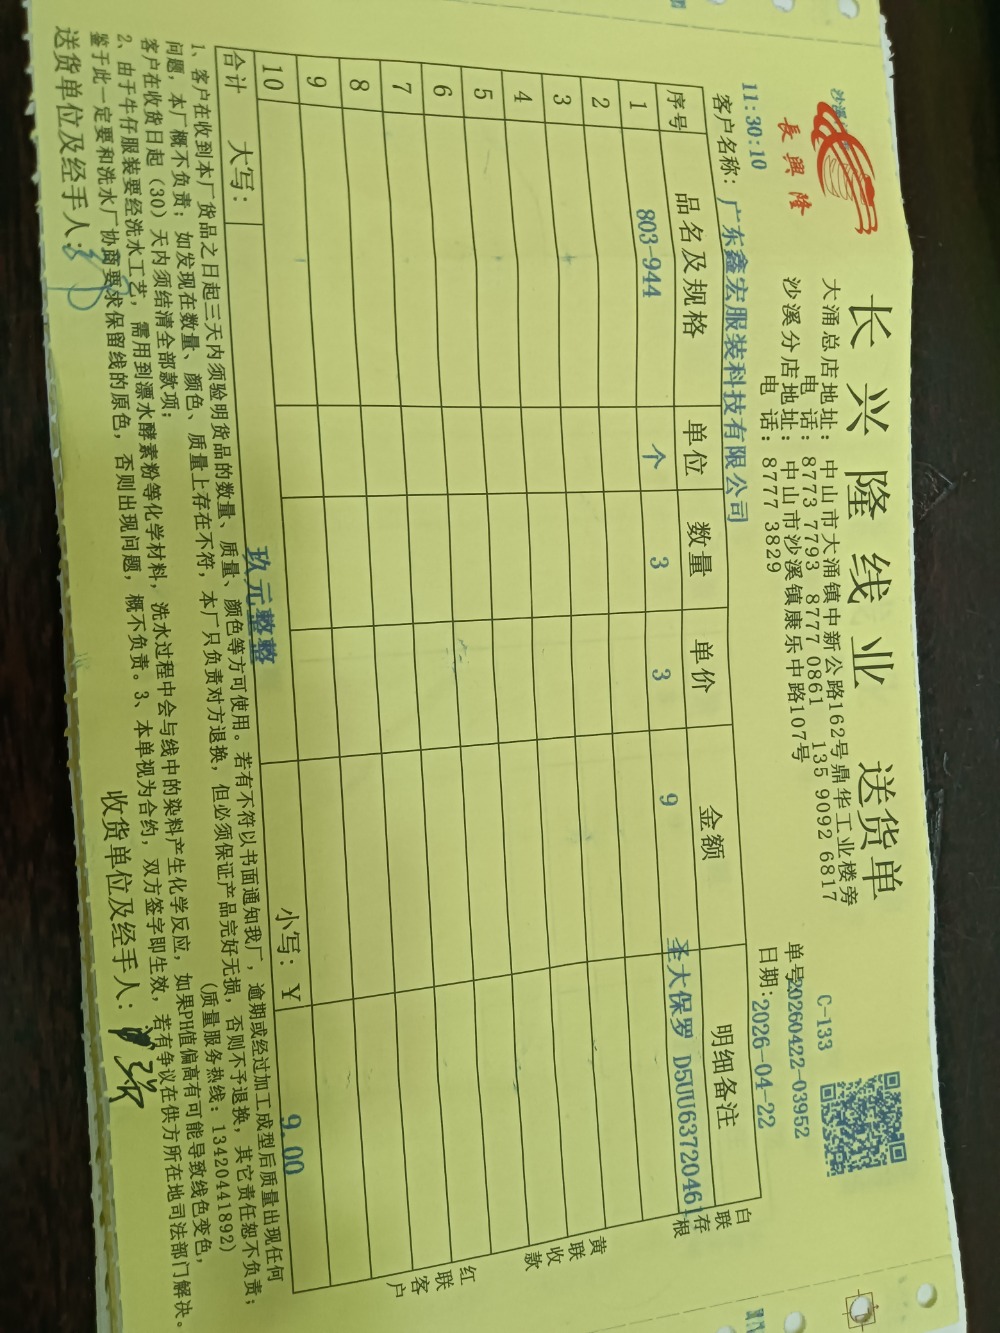 長興隆
长兴隆线业 送货单
大涌总店地址：中山市大涌镇中新公路162号鼎华工业楼旁
电 话：8773 7793 8777 0861 135 9092 6817
沙溪分店地址：中山市沙溪镇康乐中路107号
电 话：8777 3829
C-133
单号20260422-03952
日期：2026-04-22
11:30:10
客户名称：广东鑫宏服装科技有限公司
序号 品名及规格 单位 数量 单价 金额 明细备注
1 803-944 个 3 3 9 圣大保罗 D5UU63720461
2
3
4
5
6
7
8
9
10
合计 大写： 玖元整整 小写：Y 9.00
白联存根
黄联收款
红联客户
1、客户在收到本厂货品之日起三天内须验明货品的数量、质量、颜色等方可使用。若有不符以书面通知我厂，逾期或经过加工成型后质量出现任何
问题，本厂概不负责；如发现在数量、颜色、质量上存在不符，本厂只负责对方退换，但必须保证产品完好无损，否则不予退换，其它责任恕不负责；
客户在收货日起（30）天内须结清全部款项； （质量服务热线：13420441892）
2、由于牛仔服装要经洗水工艺，需用到漂水酵素粉等化学材料，洗水过程中会与线中的染料产生化学反应，如果PH值偏高有可能导致线色变色，
鉴于此一定要和洗水厂协商要求保留线的原色，否则出现问题，概不负责。3、本单视为合约，双方签字即生效，若有争议在供方所在地司法部门解决。
送货单位及经手人： 收货单位及经手人：